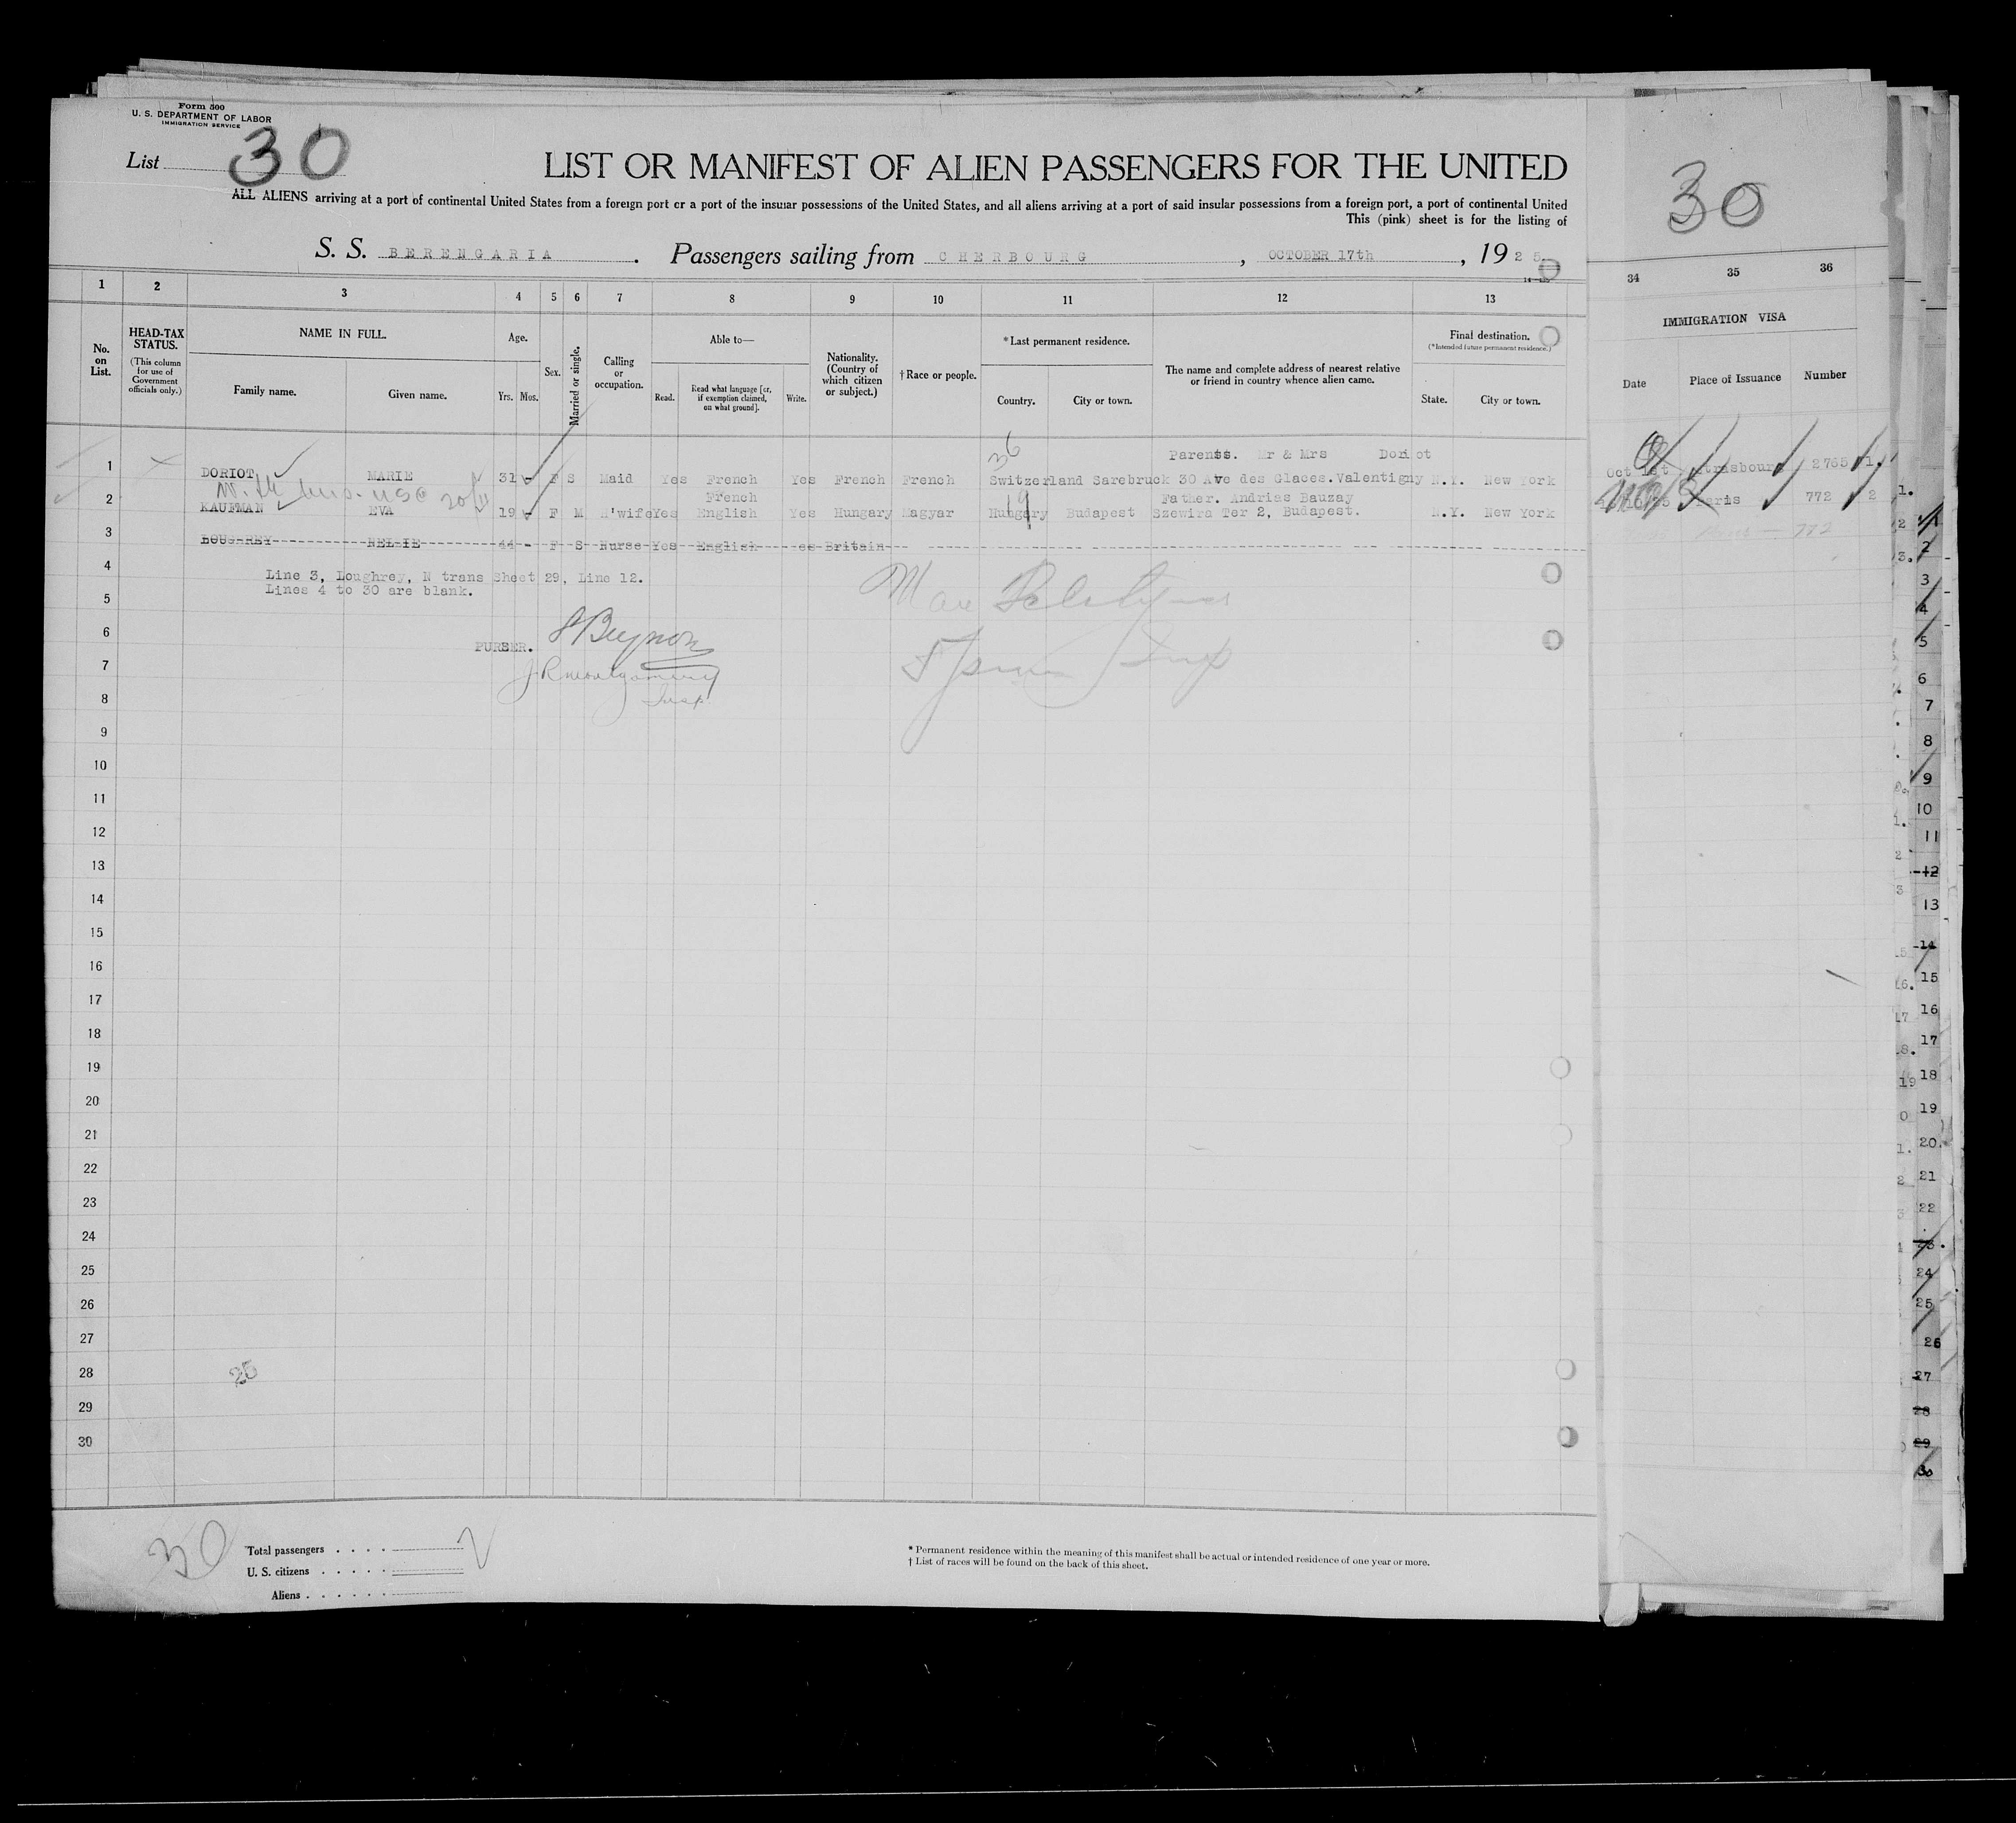 Form 500
U. S. DEPARTMENT OF LABOR
IMMIGRATION SERVICE
List 30
LIST OR MANIFEST OF ALIEN PASSENGERS FOR THE UNITED
ALL ALIENS arriving at a port of continental United States from a foreign port or a port of the insular possessions of the United States, and all aliens arriving at a port of said insular possessions from a foreign port, a port of continental United
This (pink) sheet is for the listing of
S. S. BERENGARIA. Passengers sailing from CHERBOURG, OCTOBER 17th, 1925
30
1 2 3 4 5 6 7 8 9 10 11 12 13 34 35 36
No. on List.
HEAD-TAX STATUS.
(This column for use of Government officials only.)
NAME IN FULL.
Family name. Given name.
Age.
Yrs. Mos.
Sex.
Married or single.
Calling or occupation.
Able to—
Read. Read what language [or, if exemption claimed, on what ground]. Write.
Nationality. (Country of which citizen or subject.)
†Race or people.
*Last permanent residence.
Country. City or town.
The name and complete address of nearest relative or friend in country whence alien came.
Final destination.
(*Intended future permanent residence.)
State. City or town.
IMMIGRATION VISA
Date Place of Issuance Number
36
Parents. Mr & Mrs Doriot
1 DORIOT MARIE 31 - F S Maid Yes French Yes French French Switzerland Sarebruck 30 Ave des Glaces.Valentigny N.Y. New York Oct 1st Strasbourg 2765 1.
French Father. Andrias Bauzay
2 KAUFMAN EVA 19 - F M H'wife Yes English Yes Hungary Magyar Hungary Budapest Szewira Ter 2, Budapest. N.Y. New York Paris 772 2
3 LOUGHREY NELLIE 44 - F S Nurse Yes English es Britain
772
4
Line 3, Loughrey, N trans Sheet 29, Line 12.
Lines 4 to 30 are blank.
5
6
PURSER.
7
Insp
8
9
10
11
12
13
14
15
16
17
18
19
20
21
22
23
24
25
26
27
28
29
30
30
Total passengers
U. S. citizens
Aliens
* Permanent residence within the meaning of this manifest shall be actual or intended residence of one year or more.
† List of races will be found on the back of this sheet.